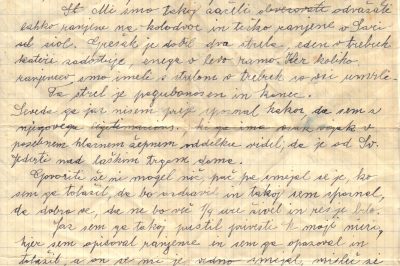 st. Mi smo takoj začeli obvezovate odvažati
lahko ranjene na kolodvor in težko ranjene v Sari
selsiol. Grešak je dobil dva strela, eden v trebuh
kateri zadostuje, enega v levo ramo. Ker koliko
ranjencev smo imeli s strelom v trebuh so vsi umrli.
Ta strel je poguboonosen in konec.
Seveda ga jaz nisem prije spoznal kakor, da sem z
njegovega ki ga ima vsak vojak v
posebnem hlačnem žepnem oddelku videl, da je od Sv.
Jederti nad laškim trgom doma.
Govoriti že ni mogel nič pač pa smejal se je, ko
sem ga tolažil, da bo ozdravil in takoj sem spoznal,
da dobro ve, da ne bo več ¼ ure živel in res je bilo.
Jaz sem ga takoj pustil prinesti k moji mizi,
kjer sem opisoval ranjence in sem ga opazoval in
tolažil a on se mi je vedno smejal, misleč si